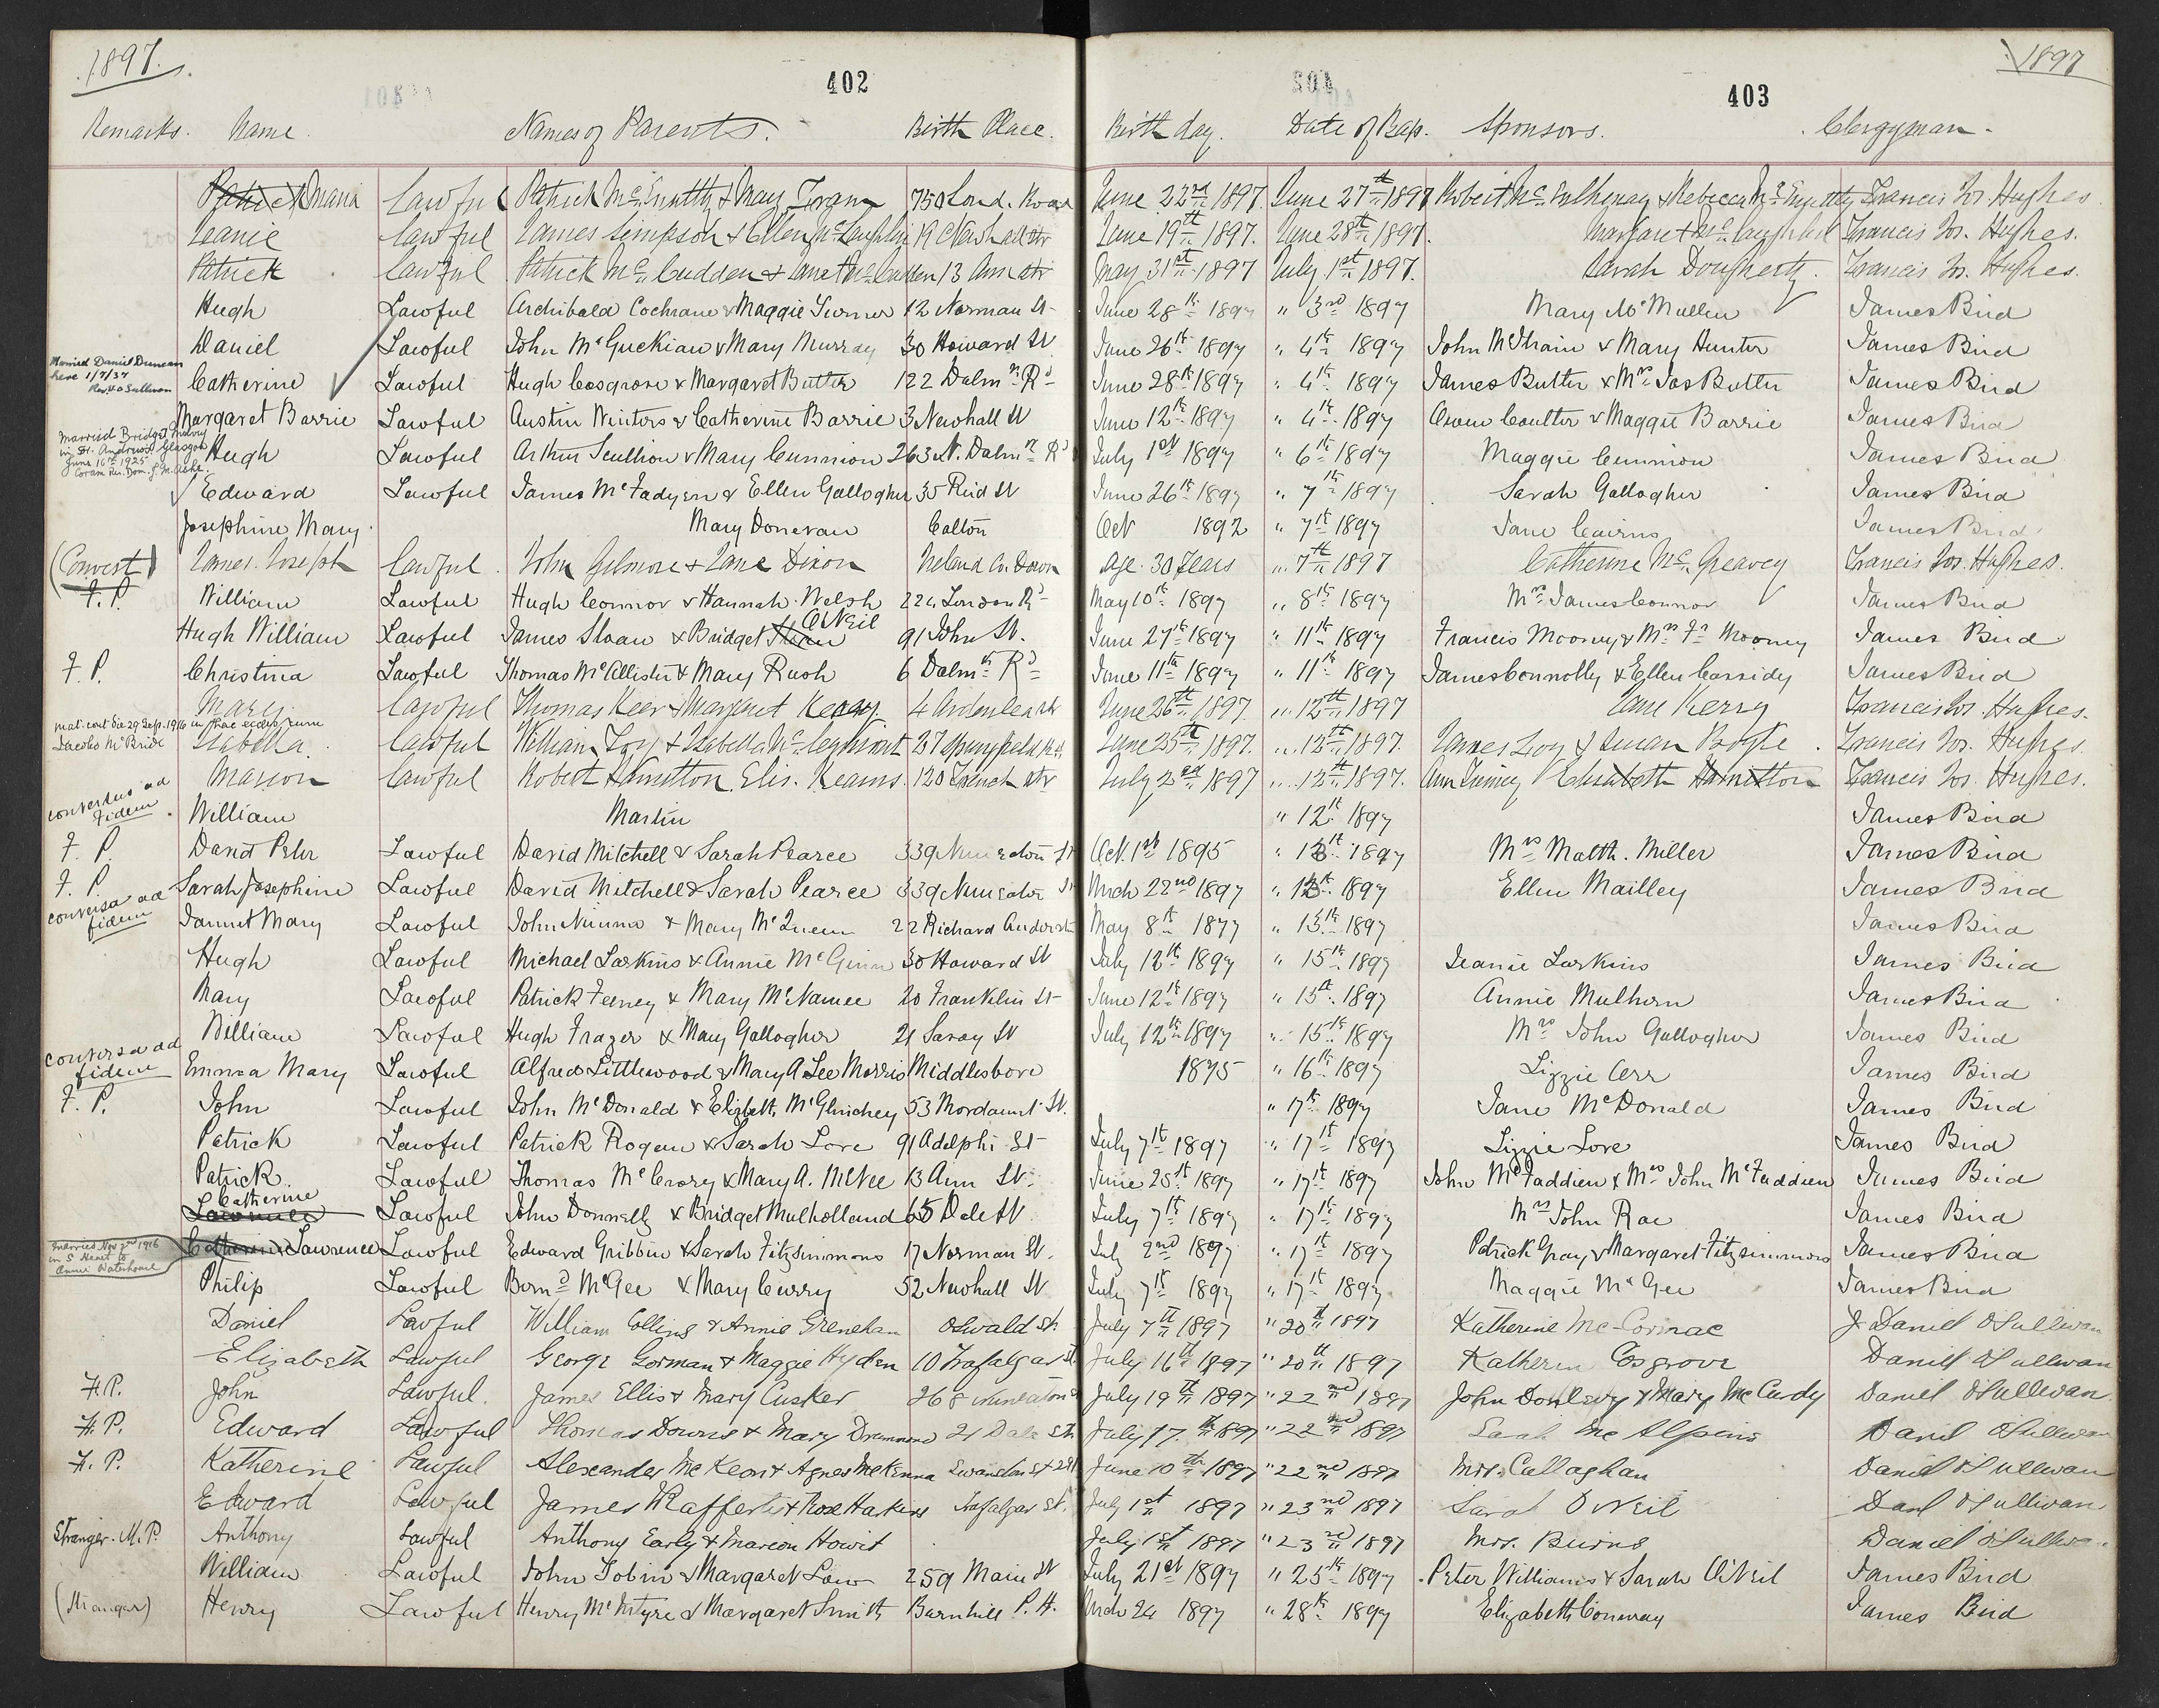 1897. 402 403 1897
Remarks. Name. Names of Parents. Birth Place. Birth day. Date of Bap. Sponsors. Clergyman.
Patrick Maria Lawful Patrick & Mary 750 Lond. Road June 22nd 1897. June 27th 1897 Robert & Rebecca Francis Jos. Hughes.
Jeanie Lawful James Simpson & Ellen McLaughlin 19 Newhall Str June 19th 1897. June 28th 1897. Margaret McLaughlin Francis Jos. Hughes.
Patrick Lawful Patrick McCudden & Jane 13 Ann Str May 31st 1897 July 1st 1897. Sarah Dougherty. Francis Jos. Hughes.
Hugh Lawful Archibald Cochrane & Maggie Turner 12 Norman St June 28th 1897 " 3rd 1897 Mary McMullen James Bird
Daniel Lawful John McGuckian & Mary Murray 30 Howard St June 26th 1897 " 4th 1897 John McIlhain & Mary Hunter James Bird
Married Daniel Duncan
here 1/7/37
Catherine Lawful Hugh Cosgrove & Margaret Butter 122 Dalmn Rd June 28th 1897 " 4th 1897 James Butter & Mrs Jas Butter James Bird
Margaret Barrie Lawful Austin Winters & Catherine Barrie 3 Newhall St June 12th 1897 " 4th 1897 Owen Coulter & Maggie Barrie James Bird
Married Bridget
in St. Andrew's Glasgow
June 16th 1925
Hugh Lawful Arthur Scullion & Mary Cunnion 263 N. Dalmn Rd July 1st 1897 " 6th 1897 Maggie Cunnion James Bird
Edward Lawful James McFadyen & Ellen Gallogher 35 Reid St June 26th 1897 " 7th 1897 Sarah Gallogher James Bird
Josephine Mary Mary Donevan Calton Oct 1892 " 7th 1897 Jane Cairns James Bird
(Convert) James Joseph Lawful John Gilmore & Jane Dixon Ireland Co. Down Age 30 Years " 7th 1897 Catherine McGreavey Francis Jos. Hughes.
F. P. William Lawful Hugh Connor & Hannah Welsh 224 London Rd May 10th 1897 " 8th 1897 Mrs James Connor James Bird
Hugh William Lawful James Sloan & Bridget O'Neil 91 John St. June 27th 1897 " 11th 1897 Francis Mooney & Mrs Fs Mooney James Bird
F. P. Christina Lawful Thomas McAllister & Mary Rush 6 Dalmth Rd June 11th 1897 " 11th 1897 James Connolly & Ellen Cassidy James Bird
Mary Lawful Thomas Keer & Margaret Kerry 4 Ardenlea Str June 26th 1897. " 12th 1897 Jane Kerry Francis Jos. Hughes.
mat. cont. die 29 Sep. 1916 in hac
Jacobo McBride
Isabella Lawful William Loy & Isabella 27 Springfield Rd June 25th 1897. " 12th 1897. James Loy & Susan Bogle. Francis Jos. Hughes.
Marion Lawful Robert Hamilton Elis. Kearns. 120 French Str July 2nd 1897 " 12th 1897. Ann Elisabeth Hamilton Francis Jos. Hughes.
conversus ad
fidem. William Martin " 12th 1897 James Bird
F. P. David Peter Lawful David Mitchell & Sarah Pearce 339 Nuneaton St Oct. 1st 1895 " 13th 1897 Mrs Matth. Miller James Bird
F. P. Sarah Josephine Lawful David Mitchell & Sarah Pearce 339 Nuneaton St March 22nd 1897 " 13th 1897 Ellen Mailley James Bird
conversa ad
fidem Jannet Mary Lawful John Nimmo & Mary McQueen 22 Richard May 8th 1877 " 13th 1897 James Bird
Hugh Lawful Michael Larkins & Annie McGinn 30 Howard St July 12th 1897 " 15th 1897 Jeanie Larkins James Bird
Mary Lawful Patrick Feeney & Mary McNamee 20 Franklin St June 12th 1897 " 15th 1897 Annie Mulhern James Bird
William Lawful Hugh Frazer & Mary Gallogher 21 Savoy St July 12th 1897 " 15th 1897 Mrs John Gallogher James Bird
conversa ad
fidem Emma Mary Lawful Alfred Littlewood & Mary A Lee Morris Middlesboro 1875 " 16th 1897 Lizzie Orr James Bird
F. P. John Lawful John McDonald & Elizbeth McGlinchey 53 Mordaunt St. " 17th 1897 Jane McDonald James Bird
Patrick Lawful Patrick Rogan & Sarah Love 91 Adelphi St July 7th 1897 " 17th 1897 Lizzie Love James Bird
Patrick Lawful Thomas McCrory & Mary A. McVee 13 Ann St. June 25th 1897 " 17th 1897 John McFaddien & Mrs John McFaddien James Bird
Catherine
Lawrence Lawful John Donnelly & Bridget Mulholland 65 Dale St July 7th 1897 " 17th 1897 Mrs John Rae James Bird
Married Nov 2nd 1916
in S. Heart to
Annie Waterhouse
Catherine Lawrence Lawful Edward Gribbin & Sarah Fitzsimmons 17 Norman St. July 2nd 1897 " 17th 1897 Patrick Gray & Margaret Fitzsimmons James Bird
Philip Lawful Bernd McGee & Mary Curry 52 Newhall St July 7th 1897 " 17th 1897 Maggie McGee James Bird
Daniel Lawful William Collins & Annie Grenehan Oswald St. July 7th 1897 " 20th 1897 Katherine McCormac Daniel O'Sullivan
Elizabeth Lawful George Gorman & Maggie Hyden 10 Trafalgar St. July 16th 1897 " 20th 1897 Katherin Cosgrove Daniel O'Sullivan
F.P. John Lawful. James Ellis & Mary Cusker 268 Nuneaton St July 19th 1897 " 22nd 1897 John & Mary McCurdy Daniel O'Sullivan
F. P. Edward Lawful Thomas Downs & Mary Drummond 21 Dale St. July 17th 1897 " 22nd 1897 Sarah McAlpine Daniel O'Sullivan
F. P. Katherine Lawful Alexander McKeon & Agnes McKenna Swanston St July June 10th 1897 " 22nd 1897 Mrs. Callaghan Daniel O'Sullivan
Edward Lawful James Rafferty & Rose Harkins Trafalgar St. July 1st 1897 " 23rd 1897 Sarah O'Neil Danl O'Sullivan
Stranger. M. P. Anthony Lawful Anthony Early & Marion Howit July 1st 1897 " 23rd 1897 Mrs. Burns Daniel O'Sullivan
William Lawful John Tobin & Margaret Law 259 Main St July 21st 1897 " 25th 1897 Peter Williams & Sarah O'Neil James Bird
(Stranger) Henry Lawful Henry McIntyre & Margaret Smith Barnhill P. H. Mch 24 1897 " 28th 1897 Elizabeth Conway James Bird